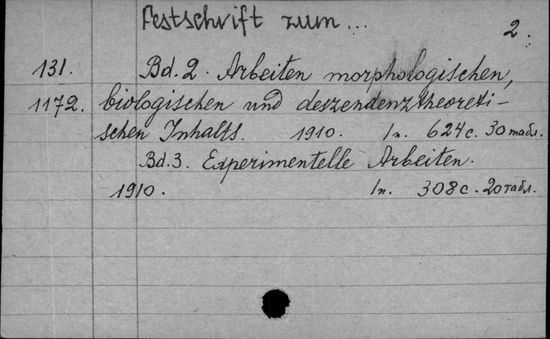 Festschrift zum...
2.
131. Bd. 2. Arbeiten morphologischen,
1172. biologischen und deszendenztheoreti-
schen Inhalts. 1910. 1п. 624с. 30табл.
Bd. 3. Experimentelle Arbeiten.
1910. 1п. 308с. 20табл.